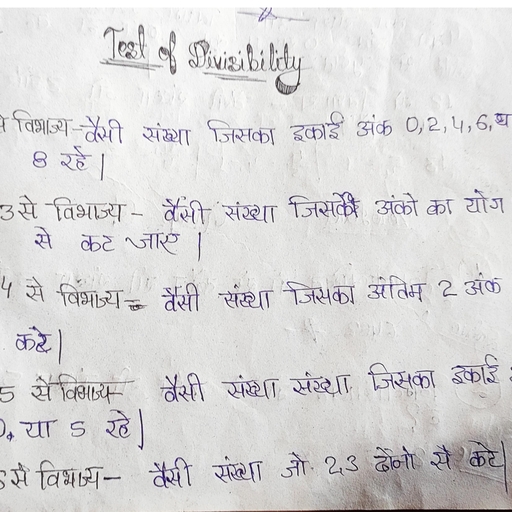 Test of Divisibility
से विभाज्य- वैसी संख्या जिसका इकाई अंक 0,2,4,6, व
8 रहे |
3 से विभाज्य - वैसी संख्या जिसके अंको का योग
से कट जाए |
4 से विभाज्य - वैसी संख्या जिसका अंतिम 2 अंक
कटे |
5 से विभाज्य- वैसी संख्या संख्या जिसका इकाई
0, या 5 रहे |
से विभाज्य - वैसी संख्या जो 2,3 दोनो से कटे |